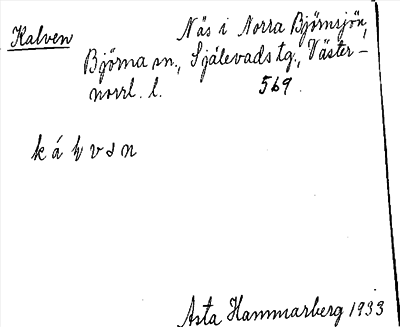 Kalven Näs i Norra Björnsjön,
Björna sn., Själevads tg., Väster-
norrl. l. 569.
Asta Hammarberg 1933